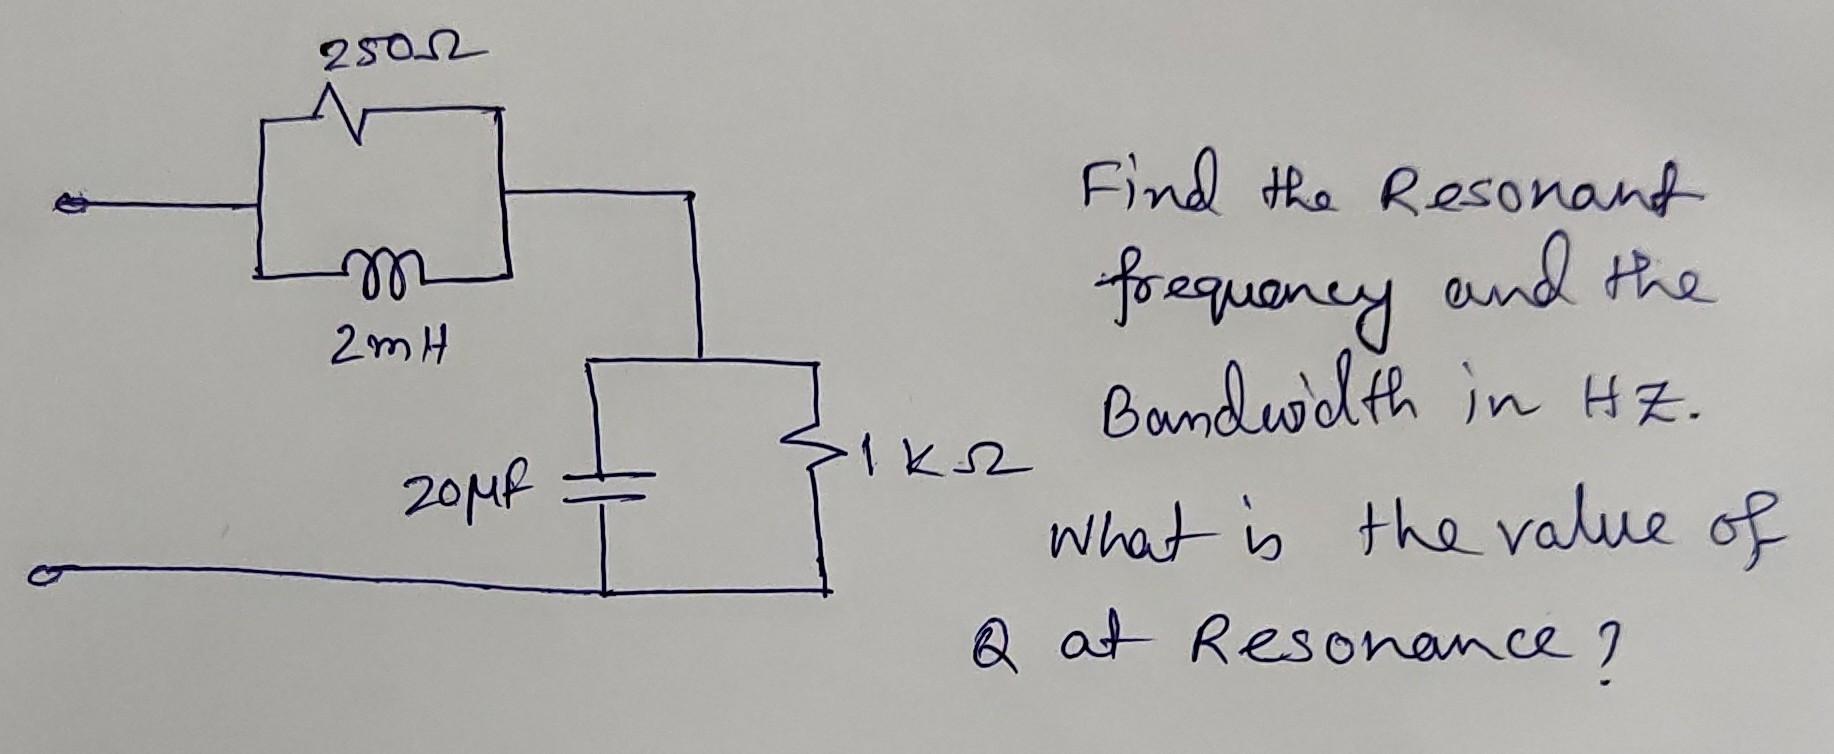 250Ω
2mH
20μF
1KΩ
Find the Resonant
frequency and the
Bandwidth in HZ.
What is the value of
Q at Resonance?